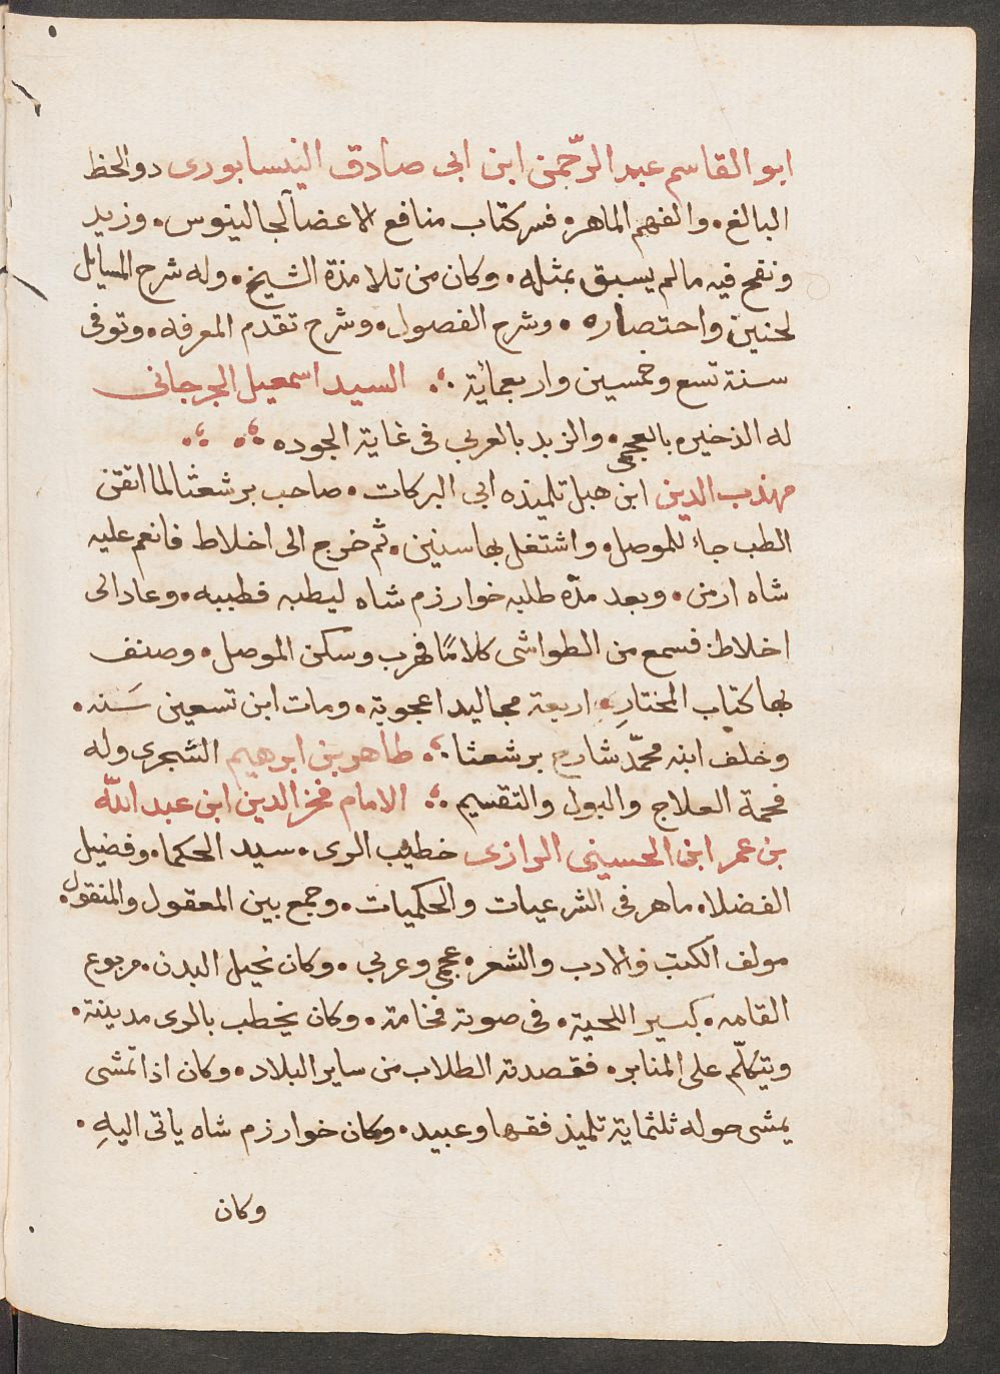 ابو القاسم عبد الرّحمن ابن ابى صادق النيسابورى دو الحظ
البالغ، والفهم الماهر، فسر كتاب منافع الاعضآ لجالينوس، وزيد
ونقح فيه مالم يسبق بمثله، وكان من تلامذة الشيخ، وله شرح المسايل
لحنين واحتصاره، وشرح الفصول، وشرح تقدم المعرفه، وتوفى
سنة تسع وخمسين واربعمائة ؞ السيد اسمعيل الجرجانى
له الذخيره بالعجمى، والزبد بالعربى فى غاية الجوده ؞ ؞
مهذب الدين ابن هبل تلميذه ابى البركات، صاحب برشعثا لما اتقن
الطب جاء للموصل، واشتغل بها سنين، ثم خرج الى اخلاط فانعم عليه
شاه ارمن، وبعد مدّه طلبه خوارزم شاه ليطبه فطببه، وعاد الى
اخلاط فسمع من الطواشى كلامًا فهرب وسكن الموصل، وصنف
بها كتاب المختارِ، اربعة مجاليد اعجوبة، ومات ابن تسعين سَنه،
وخلف ابنه محمّد شارح برشعثا ؞ طاهر بن ابرهيم الشجرى وله
فحمة العلاج والبول والتقسيم ؞ الامام فخر الدين ابن عبد اللّه
بن عمر ابن الحسينى الرازى خطيب الرى، سيد الحكما، وفضيل
الفضلا، ماهر فى الشرعيات والحكميات، وجمع بين المعقول والمنقول،
مولف الكتب فى الادب والشعر، عجمى وعربى، وكان نحيل البدن، مربوع
القامه، كبير اللحية، فى صوته فخامة، وكان يخطب بالرى مدينته،
ويتكلّم على المنابر، فقصدته الطلاب من ساير البلاد، وكان اذا تمشى
يمشى حوله ثلثماية تلميذ فقها وعبيد، وكان خوارزم شاه ياتى اليهِ،
وكان